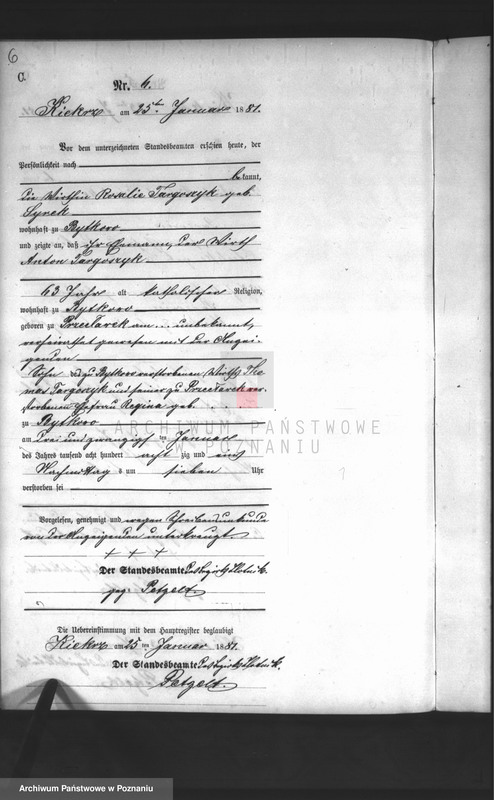 6
C.
Nr. 4.
Kiekrz am 25ten Januar 1881.
Vor dem unterzeichneten Standesbeamten erschien heute, der
Persönlichkeit nach
bekannt,
die Wirthin Rosalie Targoszyk geb.
Synek
wohnhaft zu Rytkowo
und zeigte an, daß ihr Ehemann, der Wirth
Anton Targoszyk
63 Jahr alt katholischer Religion,
wohnhaft zu Rytkowo
geboren zu am unbekannt,
verheirathet gewesen mit der Anzei-
genden
Sohn des zu Rytkowo verstorbenen Wirths Tho-
mas Targoszyk und seiner zu ver-
storbenen Ehefrau Regina geb. . . .
zu Rytkowo
am drei und zwanzigsten Januar
des Jahres tausend acht hundert acht zig und eins
Nachmittag s um sieben Uhr
verstorben sei
Vorgelesen, genehmigt und wegen Schreibensunkunde
von der Anzeigenden unterkreuzt.
+ + +
Der Standesbeamte des Bezirks
gez. Petzelt.
Die Uebereinstimmung mit dem Hauptregister beglaubigt
Kiekrz am 25 ten Januar 1881.
Der Standesbeamte des Bezirks
Petzelt.
ARCHIWUM PAŃSTWOWE
W POZNANIU
Archiwum Państwowe w Poznaniu